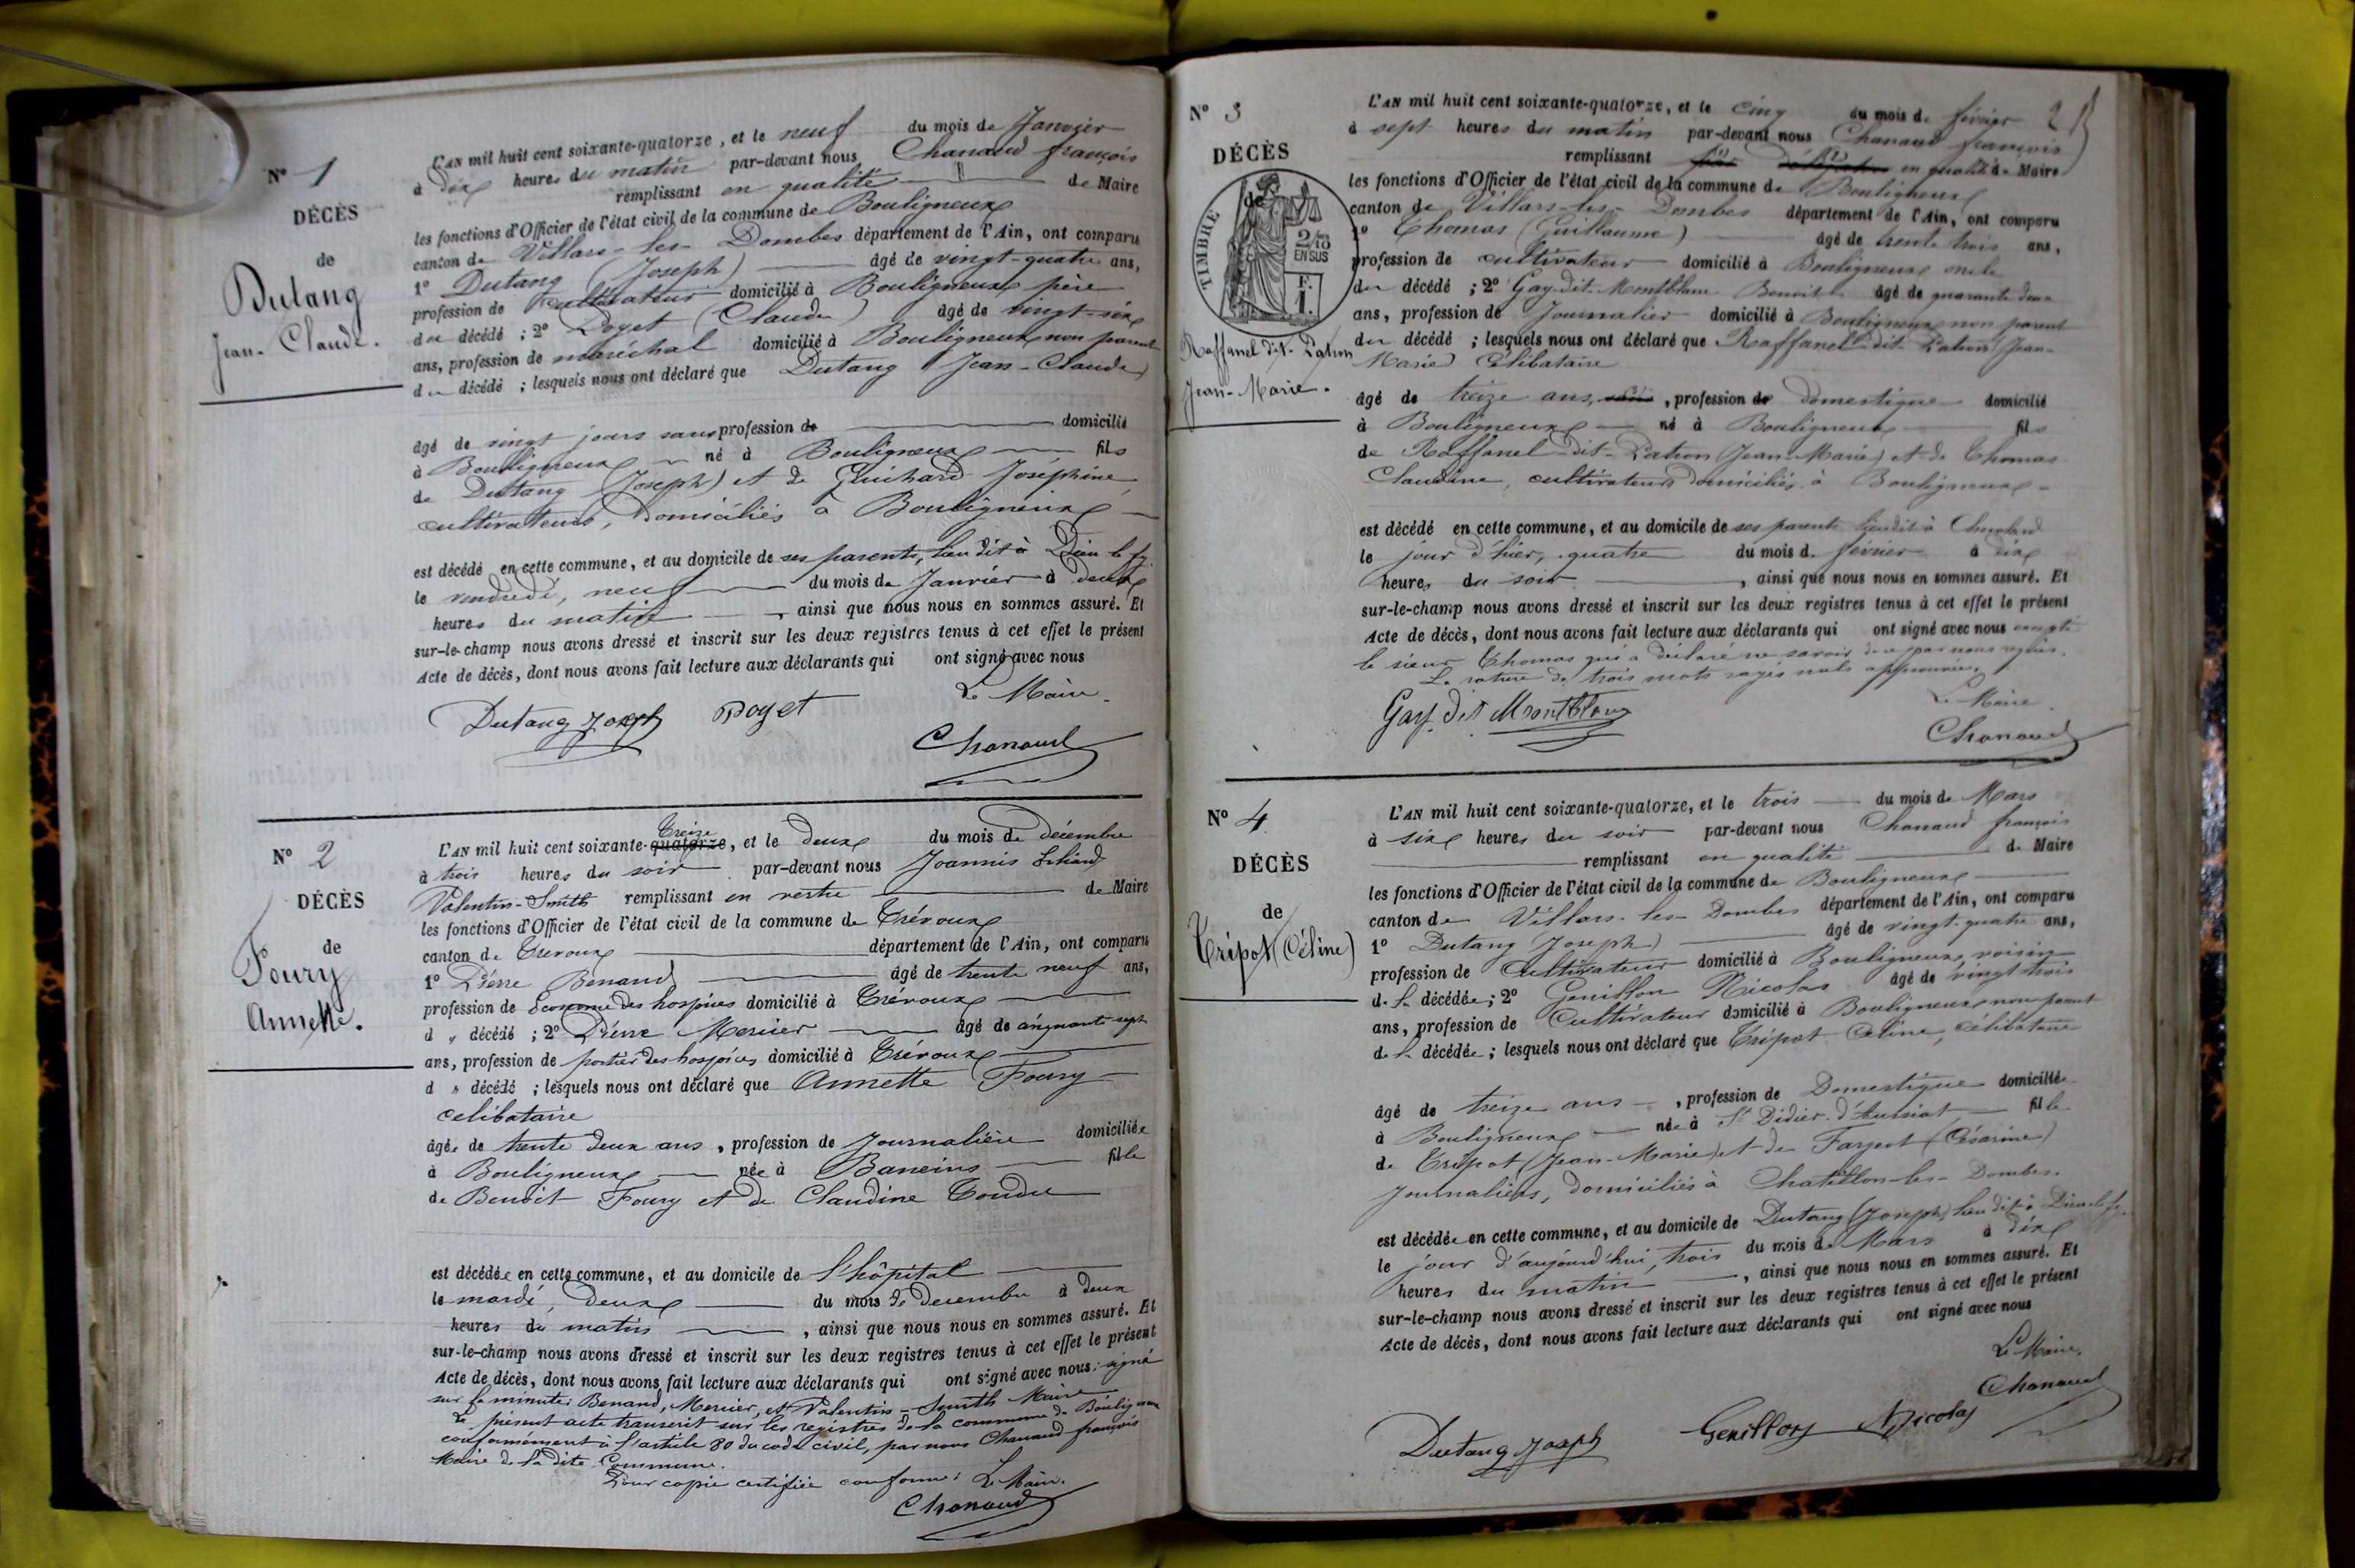 N° 1
DÉCÈS
de
Dutang
Jean-Claude.
L'AN mil huit cent soixante-quatorze, et le neuf du mois de Janvier
à dix heures du matin par-devant nous Chanaud françois
remplissant en qualité de Maire
les fonctions d'Officier de l'état civil de la commune de Bouligneux
canton de Villars-les-Dombes département de l'Ain, ont comparu
1° Dutang (Joseph) âgé de vingt-quatre ans,
profession de cultivateur domicilié à Bouligneux père
du décédé ; 2° Poyet (Claude) âgé de vingt-six
ans, profession de maréchal domicilié à Bouligneux non parent
du décédé ; lesquels nous ont déclaré que Dutang Jean-Claude
âgé de vingt jours sans profession de domicilié
à Bouligneux né à Bouligneux fils
de Dutang (Joseph) et de Guichard Joséphine,
cultivateurs, domiciliés à Bouligneux
est décédé en cette commune, et au domicile de ses parents, lieu dit à
le vendredi, neuf du mois de Janvier à deux
heures du matin, ainsi que nous nous en sommes assuré. Et
sur-le-champ nous avons dressé et inscrit sur les deux registres tenus à cet effet le présent
Acte de décès, dont nous avons fait lecture aux déclarants qui ont signé avec nous
Le Maire.
Dutang Joseph Poyet
Chanaud
N° 2
DÉCÈS
de
Foury
Annette.
Treize
L'AN mil huit cent soixante-quatorze, et le deux du mois de décembre
à trois heures du soir par-devant nous Joannis
Valentin-Smith remplissant en vertu de Maire
les fonctions d'Officier de l'état civil de la commune de Trévoux
canton de Trevoux département de l'Ain, ont comparu
1° Pierre Benand âgé de trente neuf ans,
profession de Econome des hospices domicilié à Trévoux
d " décédé ; 2° Pierre Mercier âgé de cinquante sept
ans, profession de portier des hospices domicilié à Trévoux
d " décédé ; lesquels nous ont déclaré que Annette Foury
celibataire
âgée de trente deux ans, profession de Journalière domiciliée
à Bouligneux née à Baneins fille
de Benoit Foury et de Claudine Tondu
est décédée en cette commune, et au domicile de l'hôpital
le mardi, deux du mois de decembre à deux
heures du matin, ainsi que nous nous en sommes assuré. Et
sur-le-champ nous avons dressé et inscrit sur les deux registres tenus à cet effet le présent
Acte de décès, dont nous avons fait lecture aux déclarants qui ont signé avec nous : signé
sur la minute : Benand, Mercier, et Valentin-Smith Maire
Le présent acte transcrit sur les registres de la commune de Bouligneux
conformément à l'article 80 du code civil, par nous Chanaud françois
Maire de la dite Commune.
Pour copie certifiée conforme : Le Maire.
Chanaud
N° 3
DÉCÈS
de
TIMBRE
2/10 EN SUS
F. 1.
Raffanel dit Pation
Jean-Marie.
L'AN mil huit cent soixante-quatorze, et le cinq du mois de février
à sept heures du matin par-devant nous Chanaud françois
remplissant en qualité de Maire
les fonctions d'Officier de l'état civil de la commune de Bouligneux
canton de Villars-les-Dombes département de l'Ain, ont comparu
1° Thomas (Guillaume) âgé de trente trois ans,
profession de cultivateur domicilié à Bouligneux oncle
du décédé ; 2° Gay-dit-Montblanc Benoit âgé de quarante deux
ans, profession de Journalier domicilié à Bouligneux non parent
du décédé ; lesquels nous ont déclaré que Raffanel dit Pation (Jean-
Marie) Célibataire
âgé de treize ans, profession de domestique domicilié
à Bouligneux né à Bouligneux fils
de Raffanel-dit-Pation (Jean-Marie) et de Thomas
Claudine, cultivateurs domiciliés à Bouligneux
est décédé en cette commune, et au domicile de ses parents lieu dit à
le jour d'hier, quatre du mois de février à dix
heures du soir, ainsi que nous nous en sommes assuré. Et
sur-le-champ nous avons dressé et inscrit sur les deux registres tenus à cet effet le présent
Acte de décès, dont nous avons fait lecture aux déclarants qui ont signé avec nous excepté
le sieur Thomas qui a déclaré ne savoir de ce par nous requis.
La rature de trois mots rayés nuls approuvée.
Le Maire.
Gay dit Montblanc
Chanaud
N° 4
DÉCÈS
de
Tripot (Céline)
L'AN mil huit cent soixante-quatorze, et le trois du mois de Mars
à six heures du soir par-devant nous Chanaud françois
remplissant en qualité de Maire
les fonctions d'Officier de l'état civil de la commune de Bouligneux
canton de Villars-les-Dombes département de l'Ain, ont comparu
1° Dutang (Joseph) âgé de vingt-quatre ans,
profession de Cultivateur domicilié à Bouligneux, voisin
de la décédée ; 2° Genillon Nicolas âgé de vingt trois
ans, profession de Cultivateur domicilié à Bouligneux non parent
de la décédée ; lesquels nous ont déclaré que Tripot Céline, célibataire
âgé de treize ans, profession de Domestique domiciliée
à Bouligneux née à St Didier d'Aussiat fille
de Tripot (Jean-Marie) et de Fargeot (Césarine)
Journaliers, domiciliés à Chatillon-les-Dombes.
est décédée en cette commune, et au domicile de Dutang (Joseph) lieu dit à
le jour d'aujourd'hui, trois du mois de Mars à dix
heures du matin, ainsi que nous nous en sommes assuré. Et
sur-le-champ nous avons dressé et inscrit sur les deux registres tenus à cet effet le présent
Acte de décès, dont nous avons fait lecture aux déclarants qui ont signé avec nous
Le Maire.
Chanaud
Dutang Joseph Genillon Nicolas